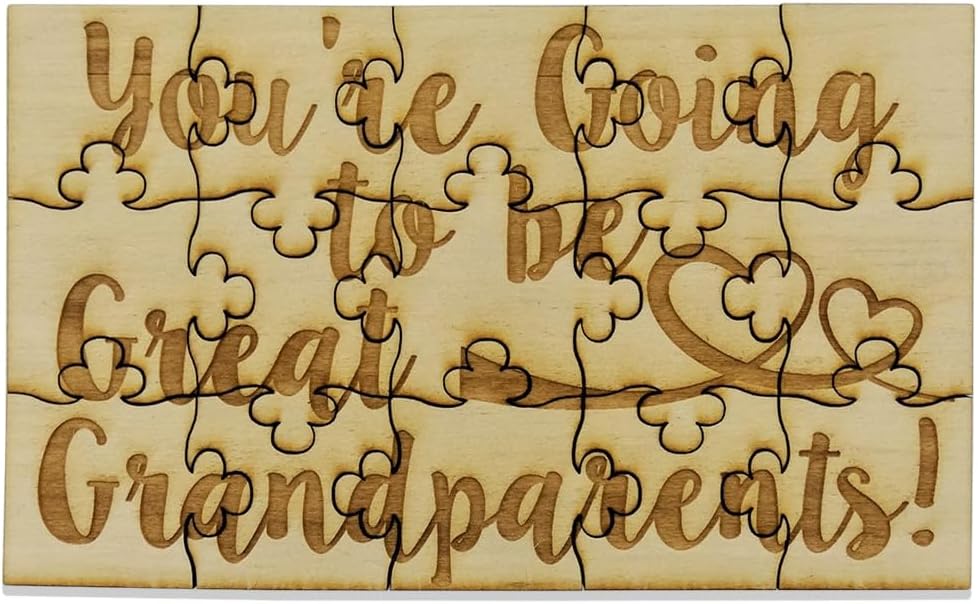 You're Going
to be
Great
Grandparents!